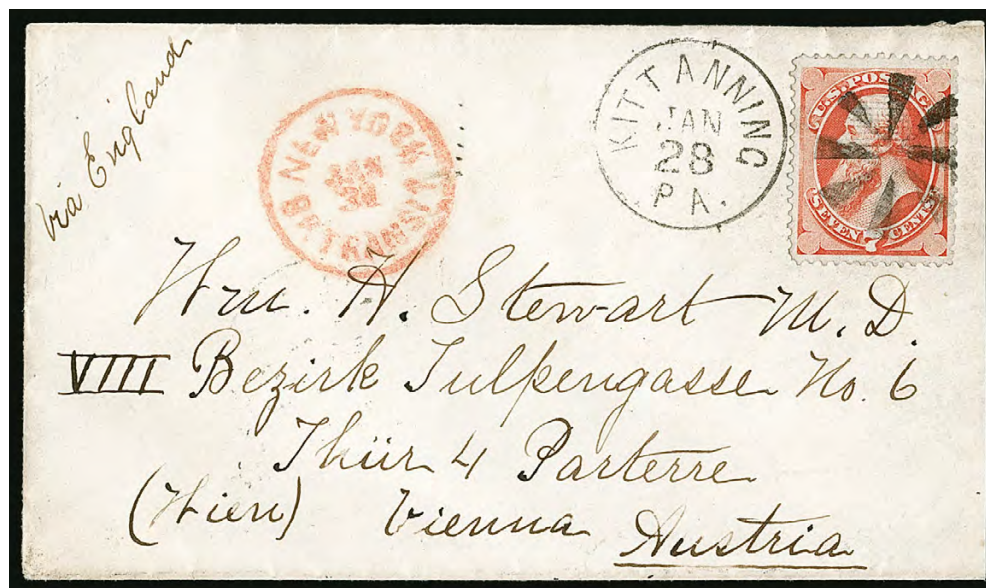 via England
NEW YORK
BR. TRANSIT
KITTANNING
JAN
28
PA.
U.S. POSTAGE
SEVEN 7 CENTS
Wm. H. Stewart M. D.
VIII Bezirk Tulpengasse No. 6
Thür 4 Parterre
(Wien) Vienna
Austria